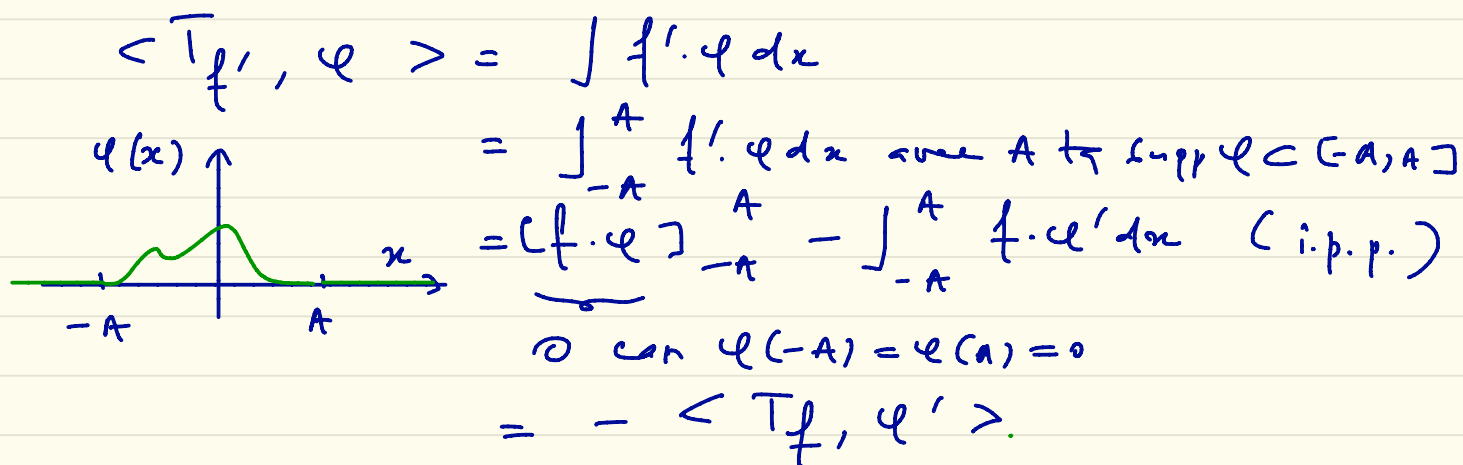 < T_{f'}, φ > = ∫ f'.φ dx
= ∫_{-A}^{A} f'.φ dx avec A tq supp φ ⊂ [-A, A]
φ(x)
x
-A A
= [f.φ]_{-A}^{A} - ∫_{-A}^{A} f.φ' dx (i.p.p.)
0 car φ(-A) = φ(A) = 0
= - < T_f, φ' >.